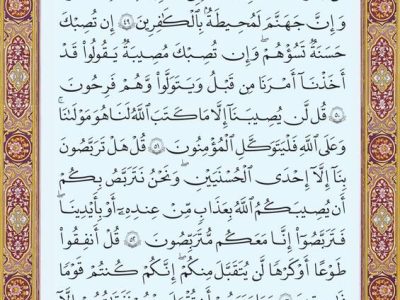 وَإِنَّ جَهَنَّمَ لَمُحِيطَةٌۢ بِٱلْكَٰفِرِينَ ۝٤٩ إِن تُصِبْكَ
حَسَنَةٌ تَسُؤْهُمْ ۖ وَإِن تُصِبْكَ مُصِيبَةٌ يَقُولُوا۟ قَدْ
أَخَذْنَآ أَمْرَنَا مِن قَبْلُ وَيَتَوَلَّوا۟ وَّهُمْ فَرِحُونَ
۝٥٠ قُل لَّن يُصِيبَنَآ إِلَّا مَا كَتَبَ ٱللَّهُ لَنَا هُوَ مَوْلَىٰنَا ۚ
وَعَلَى ٱللَّهِ فَلْيَتَوَكَّلِ ٱلْمُؤْمِنُونَ ۝٥١ قُلْ هَلْ تَرَبَّصُونَ
بِنَآ إِلَّآ إِحْدَى ٱلْحُسْنَيَيْنِ ۖ وَنَحْنُ نَتَرَبَّصُ بِكُمْ
أَن يُصِيبَكُمُ ٱللَّهُ بِعَذَابٍ مِّنْ عِندِهِۦٓ أَوْ بِأَيْدِينَا ۖ
فَتَرَبَّصُوٓا۟ إِنَّا مَعَكُم مُّتَرَبِّصُونَ ۝٥٢ قُلْ أَنفِقُوا۟
طَوْعًا أَوْ كَرْهًا لَّن يُتَقَبَّلَ مِنكُمْ ۖ إِنَّكُمْ كُنتُمْ قَوْمًا